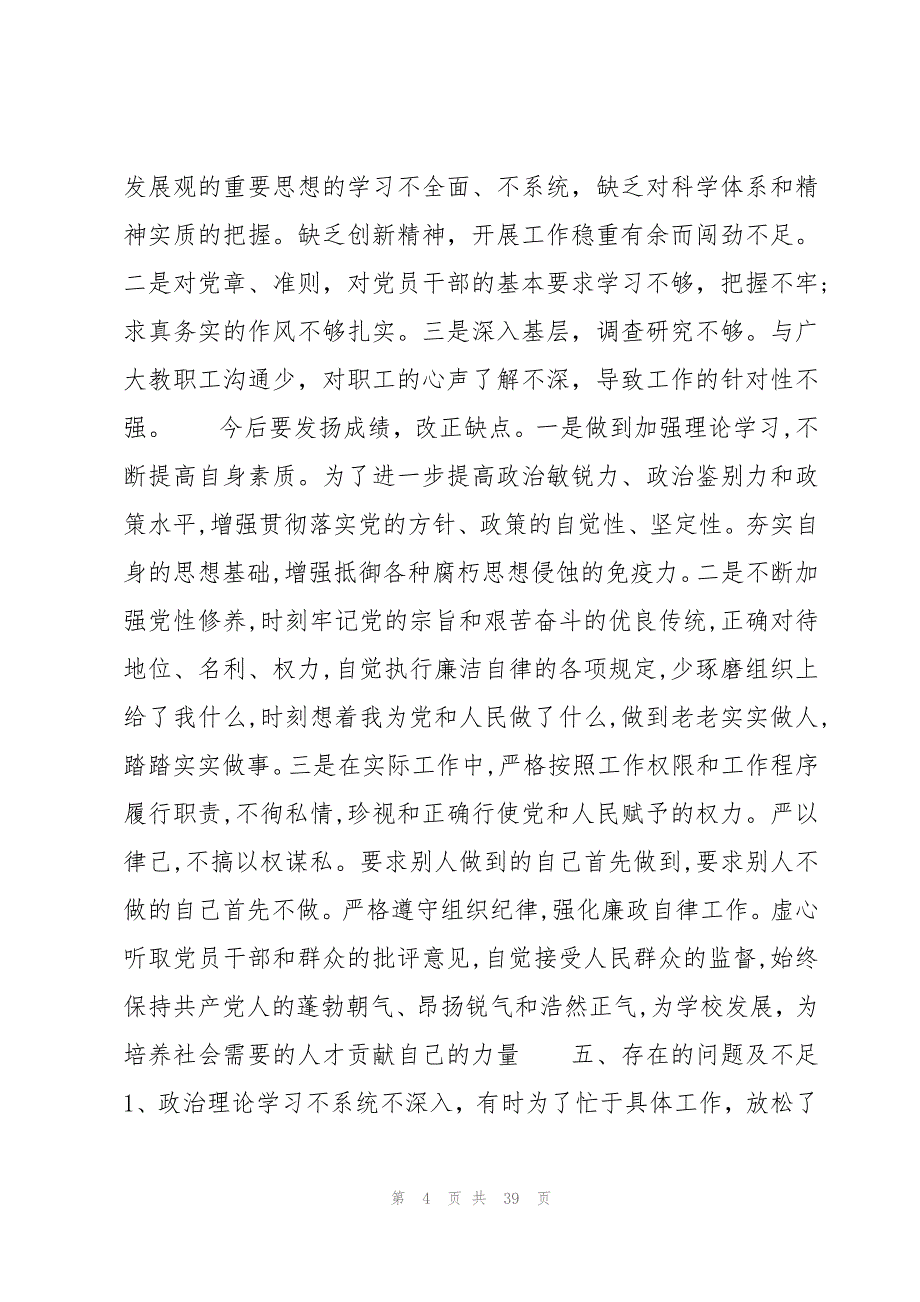 发展观的重要思想的学习不全面、不系统，缺乏对科学体系和精
神实质的把握。缺乏创新精神，开展工作稳重有余而闯劲不足。
二是对党章、准则，对党员干部的基本要求学习不够，把握不牢;
求真务实的作风不够扎实。三是深入基层，调查研究不够。与广
大教职工沟通少，对职工的心声了解不深，导致工作的针对性不
强。　　今后要发扬成绩，改正缺点。一是做到加强理论学习,不
断提高自身素质。为了进一步提高政治敏锐力、政治鉴别力和政
策水平,增强贯彻落实党的方针、政策的自觉性、坚定性。夯实自
身的思想基础,增强抵御各种腐朽思想侵蚀的免疫力。二是不断加
强党性修养,时刻牢记党的宗旨和艰苦奋斗的优良传统,正确对待
地位、名利、权力,自觉执行廉洁自律的各项规定,少琢磨组织上
给了我什么,时刻想着我为党和人民做了什么,做到老老实实做人,
踏踏实实做事。三是在实际工作中,严格按照工作权限和工作程序
履行职责,不徇私情,珍视和正确行使党和人民赋予的权力。严以
律己,不搞以权谋私。要求别人做到的自己首先做到,要求别人不
做的自己首先不做。严格遵守组织纪律,强化廉政自律工作。虚心
听取党员干部和群众的批评意见,自觉接受人民群众的监督,始终
保持共产党人的蓬勃朝气、昂扬锐气和浩然正气,为学校发展，为
培养社会需要的人才贡献自己的力量　　五、存在的问题及不足
1、政治理论学习不系统不深入，有时为了忙于具体工作，放松了
第 4 页 共 39 页